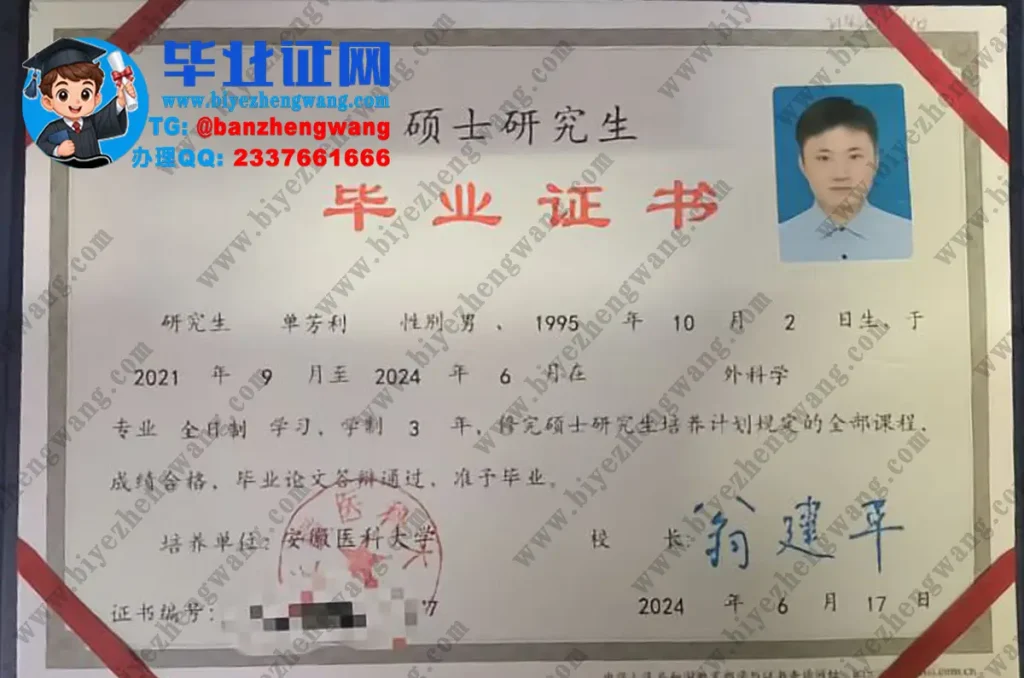 毕业证网
www.biyezhengwang.com
TG: @banzhengwang
办理QQ: 2337661666
硕士研究生
毕业证书
研究生 单芳利 性别 男 、 1995 年 10 月 2 日生, 于
2021 年 9 月至 2024 年 6 月在 外科学
专业 全日制 学习, 学制 3 年, 修完硕士研究生培养计划规定的全部课程,
成绩合格, 毕业论文答辩通过, 准予毕业。
培养单位: 安徽医科大学 校 长: 翁建平
证书编号:
2024 年 6 月 17 日
www.biyezhengwang.com